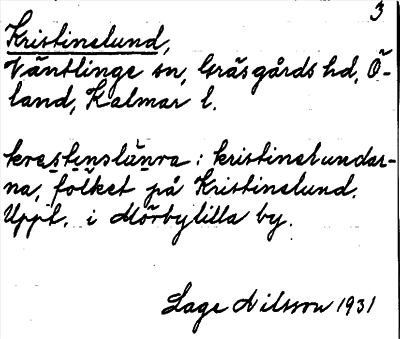 3
Kristinelund,
Väntlinge sn, Gräsgårds hd, Ö-
land, Kalmar l.
krestenslunra: kristinelundar-
na, folket på Kristinelund.
Uppt. i Mörbylilla by.
Lage Nilsson 1931